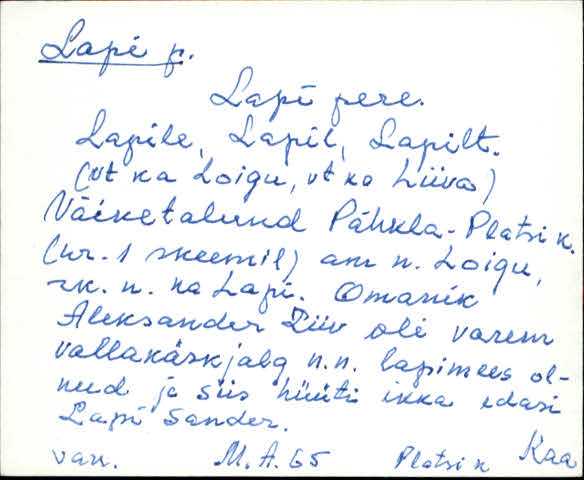 Lapi p.
Lapi pere.
Lapile, Lapil, Lapilt.
(vt ka Loigu, vt ka Liiva)
Väiketalund Pähkla-Platsi k.
(nr. 1 skeemil) am n. Loigu,
rk. n. ka Lapi. Omanik
Aleksander Liiv oli varem
vallakäskjalg n.n. lapimees ol-
nud ja siis hüüti ikka edasi
Lapi Sander.
van. M. A. 65 Platsi k Kaa